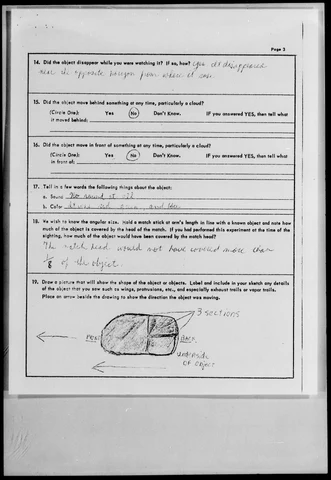 Page 3
14. Did the object disappear while you were watching it? If so, how? yes it disappeared
near the opposite horizon from where it rose.
15. Did the object move behind something at any time, particularly a cloud?
(Circle One): Yes No Don't Know. IF you answered YES, then tell what
it moved behind:
16. Did the object move in front of something at any time, particularly a cloud?
(Circle One): Yes No Don't Know. IF you answered YES, then tell what
in front of:
17. Tell in a few words the following things about the object:
a. Sound No sound at all
b. Color
18. We wish to know the angular size. Hold a match stick at arm's length in line with a known object and note how
much of the object is covered by the head of the match. If you had performed this experiment at the time of the
sighting, how much of the object would have been covered by the match head?
The match head would not have covered more than
1/8 of the object.
19. Draw a picture that will show the shape of the object or objects. Label and include in your sketch any details
of the object that you saw such as wings, protrusions, etc., and especially exhaust trails or vapor trails.
Place an arrow beside the drawing to show the direction the object was moving.
3 sections
FRONT BACK
underside
of object